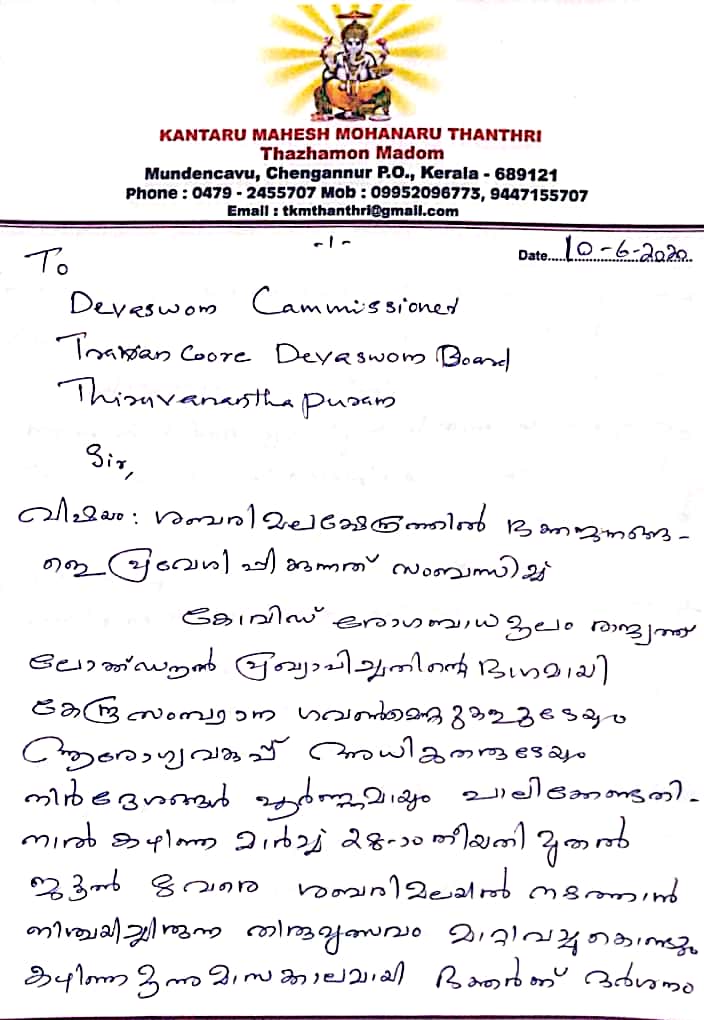 KANTARU MAHESH MOHANARU THANTHRI
Thazhamon Madom
Mundencavu, Chengannur P.O., Kerala - 689121
Phone : 0479 - 2455707 Mob : 09952096773, 9447155707
Email : tkmthanthri@gmail.com
-1-
Date....10-6-2020..
To
Devaswom Cammissioner
Travancoore Devaswom Board
Thiruvananthapuram
Sir,
വിഷയം : ശബരിമലക്ഷേത്രത്തിൽ ഭക്തജനങ്ങ-
ളെ പ്രവേശിപ്പിക്കുന്നത് സംബന്ധിച്ച്
കോവിഡ് രോഗബാധമൂലം രാജ്യത്ത്
ലോക്ക്ഡൗൺ പ്രഖ്യാപിച്ചതിന്റെ ഭാഗമായി
കേന്ദ്രസംസ്ഥാന ഗവൺമെന്റുകളുടേയും
ആരോഗ്യവകുപ്പ് അധികൃതരുടേയും
നിർദ്ദേശങ്ങൾ പൂർണ്ണമായും പാലിക്കേണ്ടതി-
നാൽ കഴിഞ്ഞ മാർച്ച് 28-ാം തീയതി മുതൽ
ജൂൺ 8 വരെ ശബരിമലയിൽ നടത്താൻ
നിശ്ചയിച്ചിരുന്ന തിരുവുത്സവം മാറ്റിവച്ചുകൊണ്ടും
കഴിഞ്ഞ മൂന്നുമാസക്കാലമായി ഭക്തർക്ക് ദർശനം